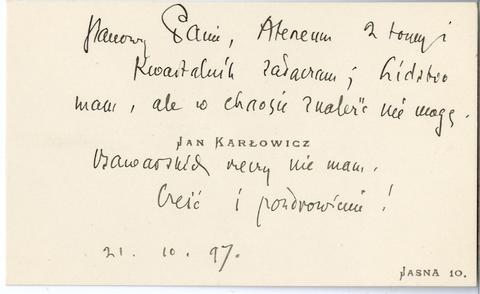 Szanowny Panie, Ateneum 2 tomy i
Kwartalnik załączam; Lidstwo
mam, ale w chaosie znaleźć nie mogę.
JAN KARŁOWICZ
rzeczy nie mam.
Cześć i pozdrowienie!
21. 10. 97.
JASNA 10.